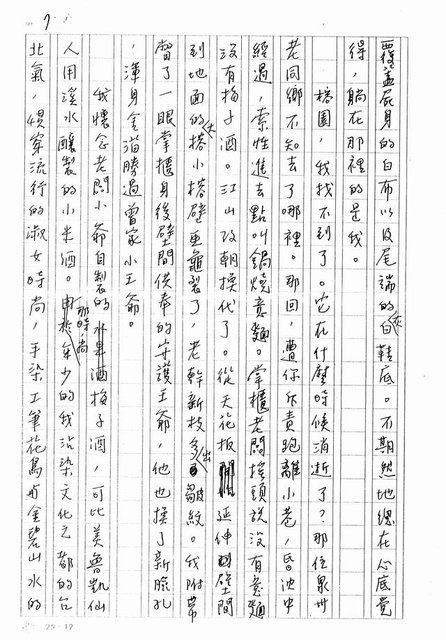 7
覆蓋屍身的白布以及尾端的灰白鞋底。不期然地總在心底覺
得，躺在那裡的是我。
榕園，我找不到了。它在什麼時候消逝了？那位泉州
老同鄉不知去了哪裡。那回，遭你斥責跑離小巷，昏沈中
經過，索性進去點叫鍋燒意麵。掌櫃老闆挨頭說沒有意麵
沒有梅子酒。江山改朝換代了。從天花板延伸壁間
到地面的大榕小榕壁更龜裂了，老幹新枝多出皺紋。我附帶
瞥了一眼掌櫃身後壁間供奉的守護王爺，他也換了新臉孔
，渾身金箔勝過曾家小王爺。
我懷念老闆小爺自製的水果酒梅子酒，可比美魯凱仙
人用溪水釀製的小米酒。那時，尚年少的我沾染文化之都的台
北氣，慣穿流行的淑女時尚，手染工筆花鳥与金碧山水的
25×12